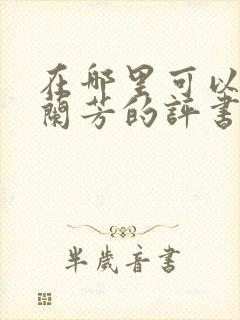 在哪里可以
蘭芳的評書
半歲音書